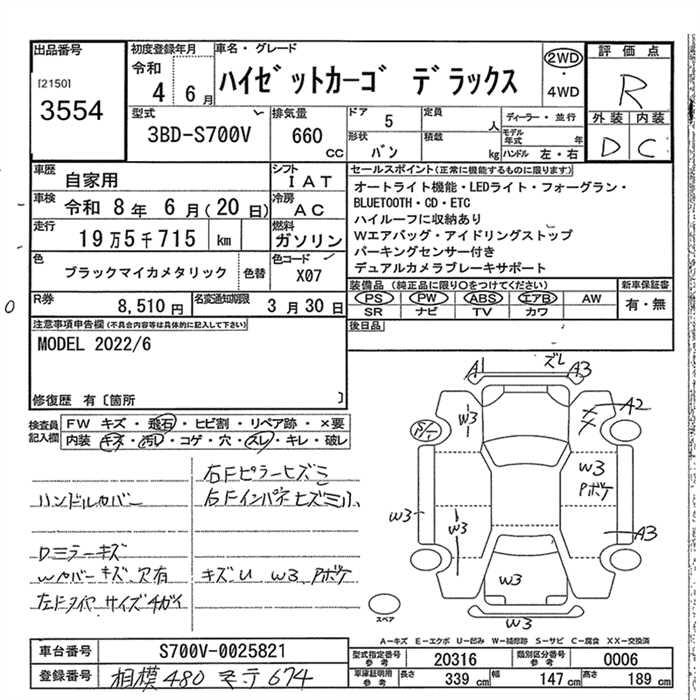 出品番号
[2150]
3554
初度登録年月
令和
4 6月
車名・グレード
ハイゼットカーゴ デラックス
2WD
・
4WD
評価点
R
外装 内装
D C
型式
3BD-S700V
排気量
660
CC
ドア 5
定員 人
形状 バン
積載 kg
ディーラー・並行
モデル年式 年
ハンドル 左・右
車歴 自家用
シフト IAT
車検 令和 8年 6月(20日)
冷房 AC
走行 19万5千715 km
燃料 ガソリン
色 ブラックマイカメタリック
色替
色コード X07
R券 8,510円
名変通知期限 3月30日
セールスポイント(正常に機能するものに限ります)
オートライト機能・LEDライト・フォーグラン・
BLUETOOTH・CD・ETC
ハイルーフに収納あり
Wエアバッグ・アイドリングストップ
パーキングセンサー付き
デュアルカメラブレーキサポート
装備品(純正品に限り○をつけてください)
PS PW ABS エアB AW
SR ナビ TV カワ
新車保証書
有・無
後日品
注意事項申告欄(不具合内容等は具体的に記入して下さい)
MODEL 2022/6
修復歴 有〔箇所 〕
検査員記入欄
FW キズ・飛石・ヒビ割・リペア跡・×要
内装 キズ・汚レ・コゲ・穴・スレ・キレ・破レ
右Fピラーヒズミ
ハンドルカバー
右Fインパネヒズミ小、
Dミラーキズ
Wカバーキズ、穴有
キズU W3 Pボケ
左Fタイヤサイズチガイ
A
ズレ
A3
W3
A2
W3
Pボケ
W3
W3
A3
W3
W3
スペア
A-キズ E-エクボ U-凹み W-補修跡 S-サビ C-腐食 XX-交換済
車台番号 S700V-0025821
登録番号 相模 480 
674
型式指定番号 参考 20316
類別区分番号 参考 0006
車庫証明用 参考
長さ 339 cm
幅 147 cm
高さ 189 cm